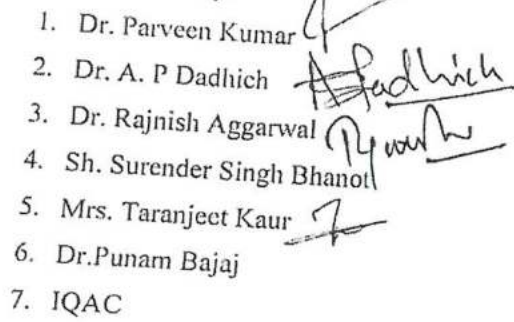 1. Dr. Parveen Kumar
2. Dr. A. P Dadhich APadhich
3. Dr. Rajnish Aggarwal
4. Sh. Surender Singh Bhanot
5. Mrs. Taranjeet Kaur
6. Dr.Punam Bajaj
7. IQAC